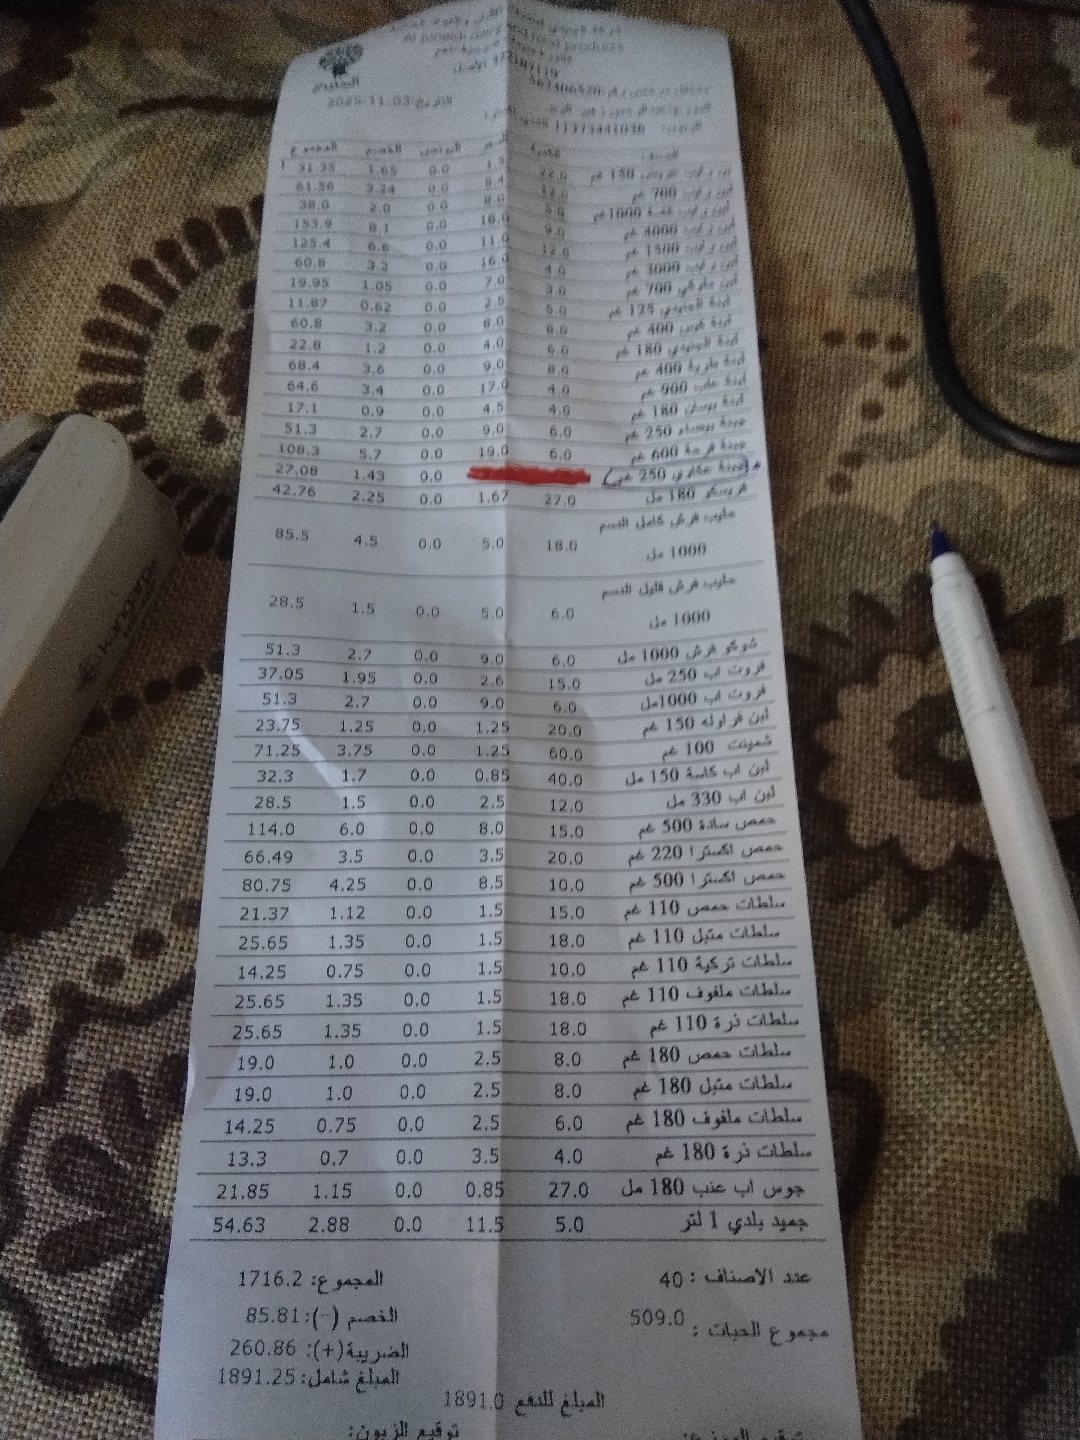 Al Junaidi dairy and food products
الجنيدي
التاريخ: 2025-11-03
11373441036
المجموع الخصم البونص
لبن زبادي 150 غم 22.0 1.5 0.0 1.65 31.35
700 غم 12.0 5.4 0.0 3.24 61.56
1000 غم 5.0 8.0 0.0 2.0 38.0
4000 غم 9.0 18.0 0.0 8.1 153.9
1500 غم 12.0 11.0 0.0 6.6 125.4
3000 غم 4.0 16.0 0.0 3.2 60.8
700 غم 3.0 7.0 0.0 1.05 19.95
لبنة الجنيدي 125 غم 5.0 2.5 0.0 0.62 11.87
لبنة 400 غم 8.0 8.0 0.0 3.2 60.8
لبنة الجنيدي 180 غم 6.0 4.0 0.0 1.2 22.8
لبنة 400 غم 8.0 9.0 0.0 3.6 68.4
لبنة 900 غم 4.0 17.0 0.0 3.4 64.6
لبنة 180 غم 4.0 4.5 0.0 0.9 17.1
جبنة بيضاء 250 غم 6.0 9.0 0.0 2.7 51.3
جبنة 600 غم 6.0 19.0 0.0 5.7 108.3
جبنة عكاوي 250 غم 0.0 1.43 27.08
فريسكو 180 مل 27.0 1.67 0.0 2.25 42.76
حليب فرش كامل الدسم
1000 مل 18.0 5.0 0.0 4.5 85.5
حليب فرش قليل الدسم
1000 مل 6.0 5.0 0.0 1.5 28.5
شوكو فرش 1000 مل 6.0 9.0 0.0 2.7 51.3
فروت اب 250 مل 15.0 2.6 0.0 1.95 37.05
فروت اب 1000مل 6.0 9.0 0.0 2.7 51.3
لبن فراوله 150 غم 20.0 1.25 0.0 1.25 23.75
شمينت 100 غم 60.0 1.25 0.0 3.75 71.25
لبن اب كاسة 150 مل 40.0 0.85 0.0 1.7 32.3
لبن اب 330 مل 12.0 2.5 0.0 1.5 28.5
حمص سادة 500 غم 15.0 8.0 0.0 6.0 114.0
حمص اكسترا 220 غم 20.0 3.5 0.0 3.5 66.49
حمص اكسترا 500 غم 10.0 8.5 0.0 4.25 80.75
سلطات حمص 110 غم 15.0 1.5 0.0 1.12 21.37
سلطات متبل 110 غم 18.0 1.5 0.0 1.35 25.65
سلطات تركية 110 غم 10.0 1.5 0.0 0.75 14.25
سلطات ملفوف 110 غم 18.0 1.5 0.0 1.35 25.65
سلطات ذرة 110 غم 18.0 1.5 0.0 1.35 25.65
سلطات حمص 180 غم 8.0 2.5 0.0 1.0 19.0
سلطات متبل 180 غم 8.0 2.5 0.0 1.0 19.0
سلطات ملفوف 180 غم 6.0 2.5 0.0 0.75 14.25
سلطات ذرة 180 غم 4.0 3.5 0.0 0.7 13.3
جوس اب عنب 180 مل 27.0 0.85 0.0 1.15 21.85
جميد بلدي 1 لتر 5.0 11.5 0.0 2.88 54.63
عدد الاصناف : 40 المجموع: 1716.2
مجموع الحبات : 509.0 الخصم (-): 85.81
الضريبة(+): 260.86
المبلغ شامل: 1891.25
المبلغ للدفع 1891.0
توقيع الزبون: